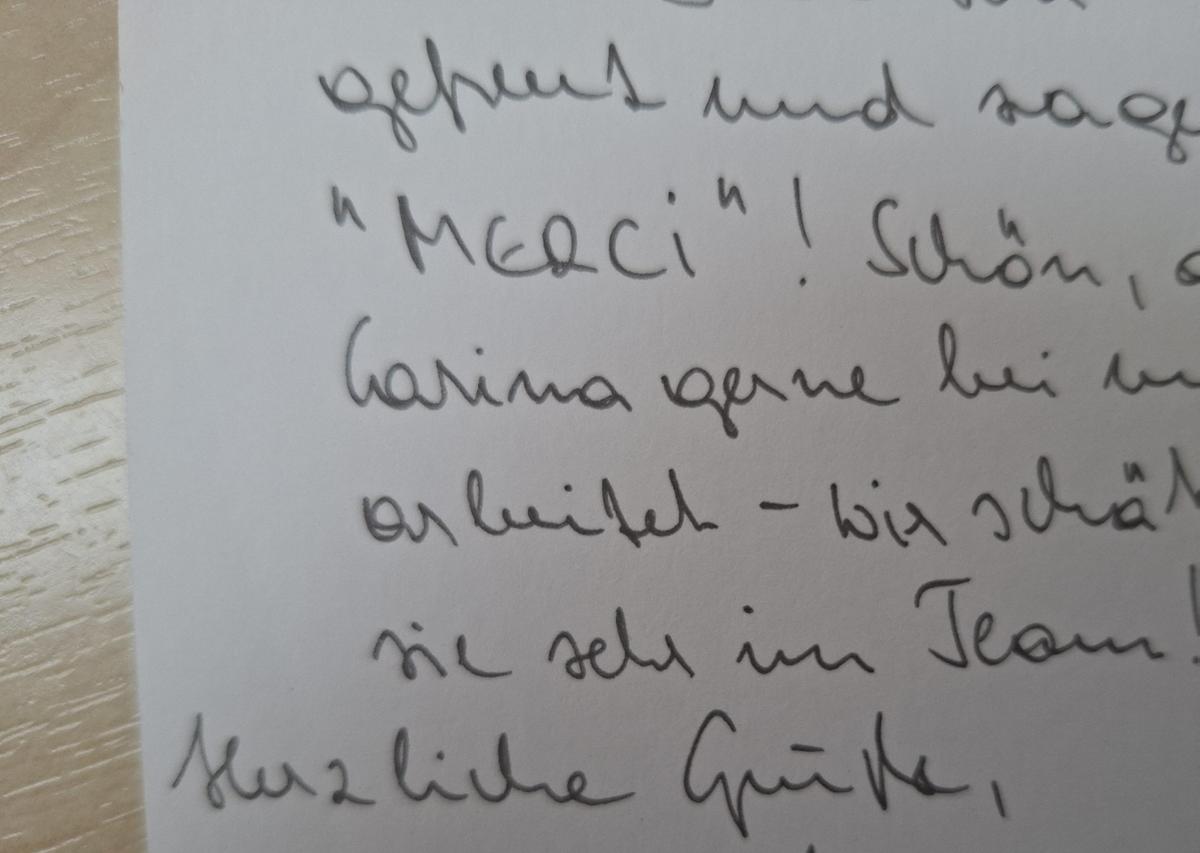 gefreut und sage
"MERCi"! Schön, d
Carina gerne bei un
arbeitet - wir schät
sie sehr im Team!
Herzliche Grüße,